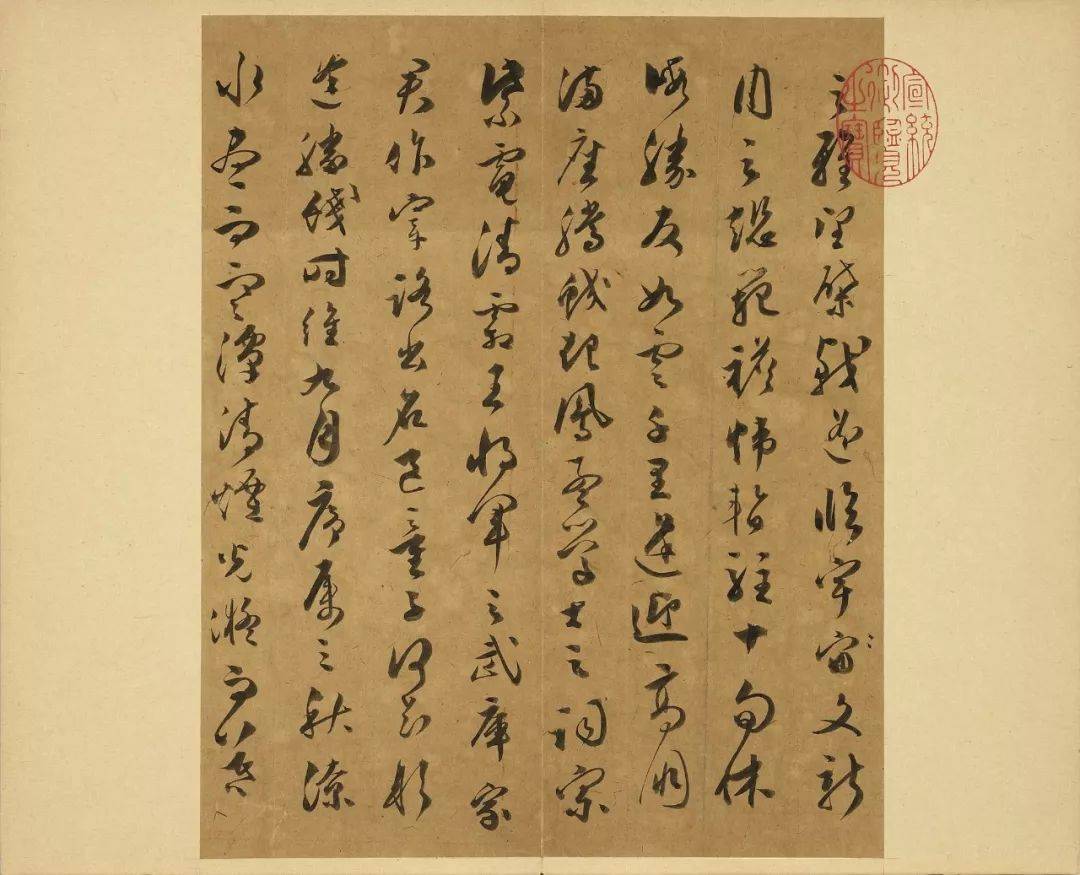 之雅望棨戟遙臨宇宙文新
之懿範襜帷暫駐十旬休
暇勝友如雲千里逢迎高朋
滿座騰蛟起鳳孟學士之詞宗
紫電清霜王將軍之武庫家
君作宰路出名區童子何知躬
逢勝餞時維九月序屬三秋潦
水盡而寒潭清煙光凝而
宣統
御覽
之寶